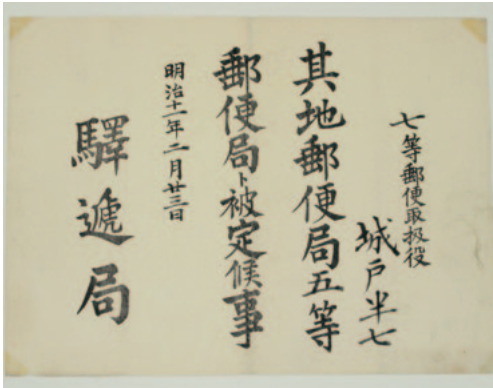 七等郵便取扱役
城戸半七
其地郵便局五等
郵便局ト被定候事
明治十一年二月廿三日
驛遞局